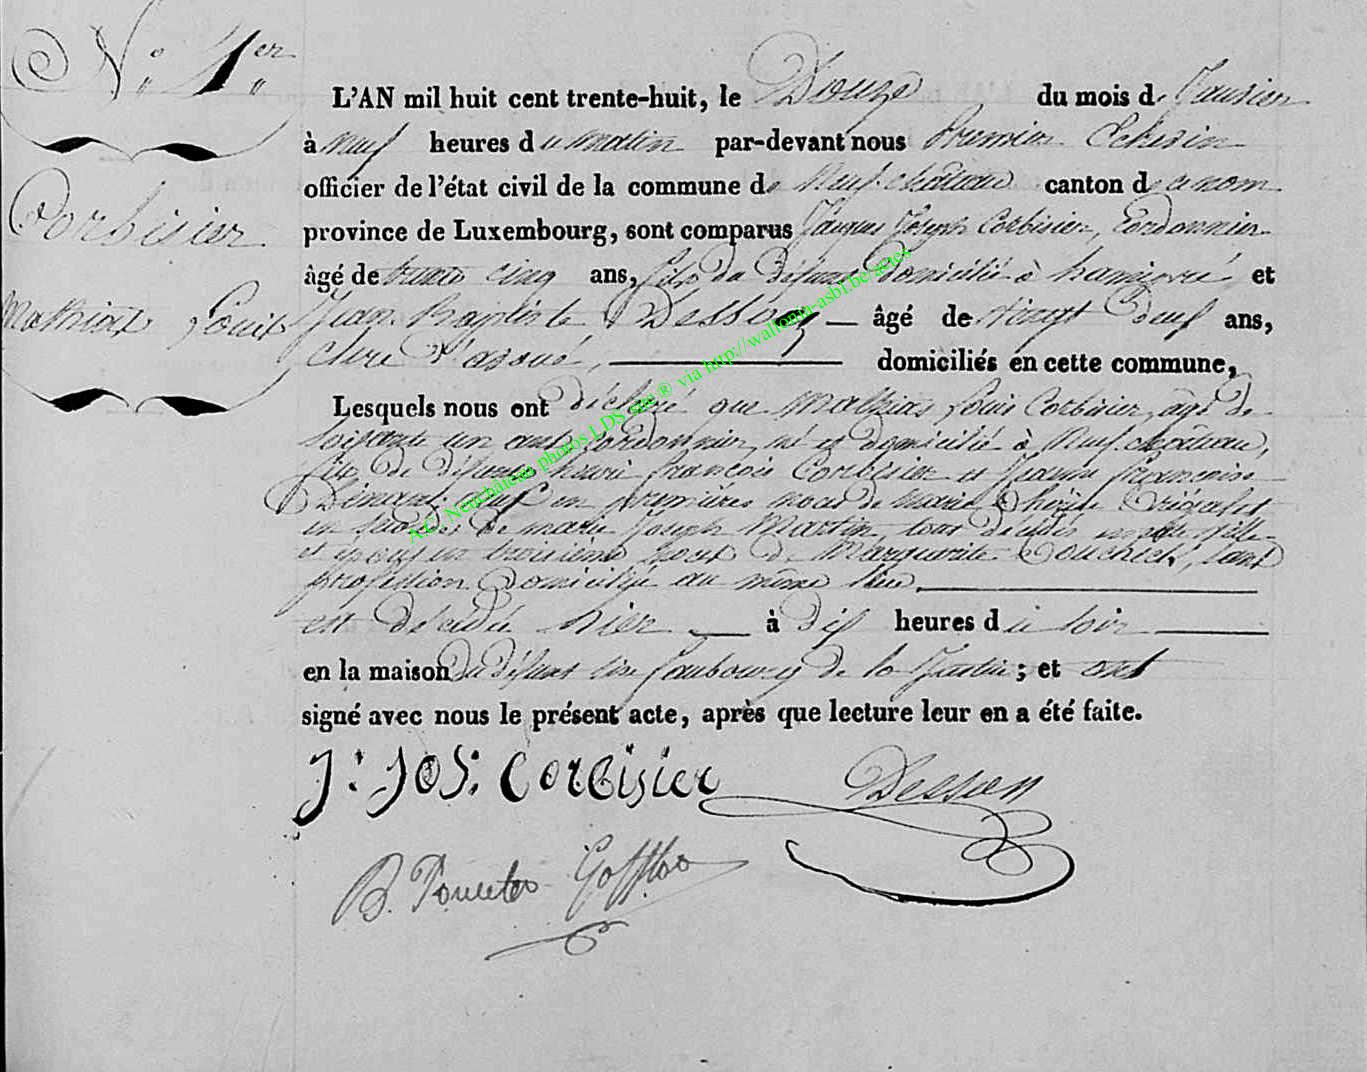 N° 1er
Corbisier
Mathias Louis
L'AN mil huit cent trente-huit, le Douze du mois de Janvier
à neuf heures du matin par-devant nous Premier Echevin
officier de l'état civil de la commune de Neufchâteau canton de ce nom
province de Luxembourg, sont comparus Jacques Joseph Corbisier, Cordonnier
âgé de trente cinq ans, fils du défunt domicilié à hamipré et
Jean Baptiste Dessoy âgé de vingt neuf ans,
Clerc d'avoué, domiciliés en cette commune,
Lesquels nous ont déclaré que Mathias Louis Corbisier, âgé de
soixante un ans, cordonnier, né et domicilié à Neufchâteau,
fils de défunts henri françois Corbisier et Jeanne françoise
veuf en premières noces de marie
en secondes de marie Joseph Martin, tous décédés en cette ville
et époux en troisième noces de Marguerite sans
profession domiciliée au même lieu
est décédé hier à dix heures du soir
en la maison du défunt sise faubourg de la ; et ont
signé avec nous le présent acte, après que lecture leur en a été faite.
J. Jos. Corbisier
B. Poncelet Gofflot
A.C. Neufchâteau photos LDS site ® via http://wallonia-asbl.be/actes